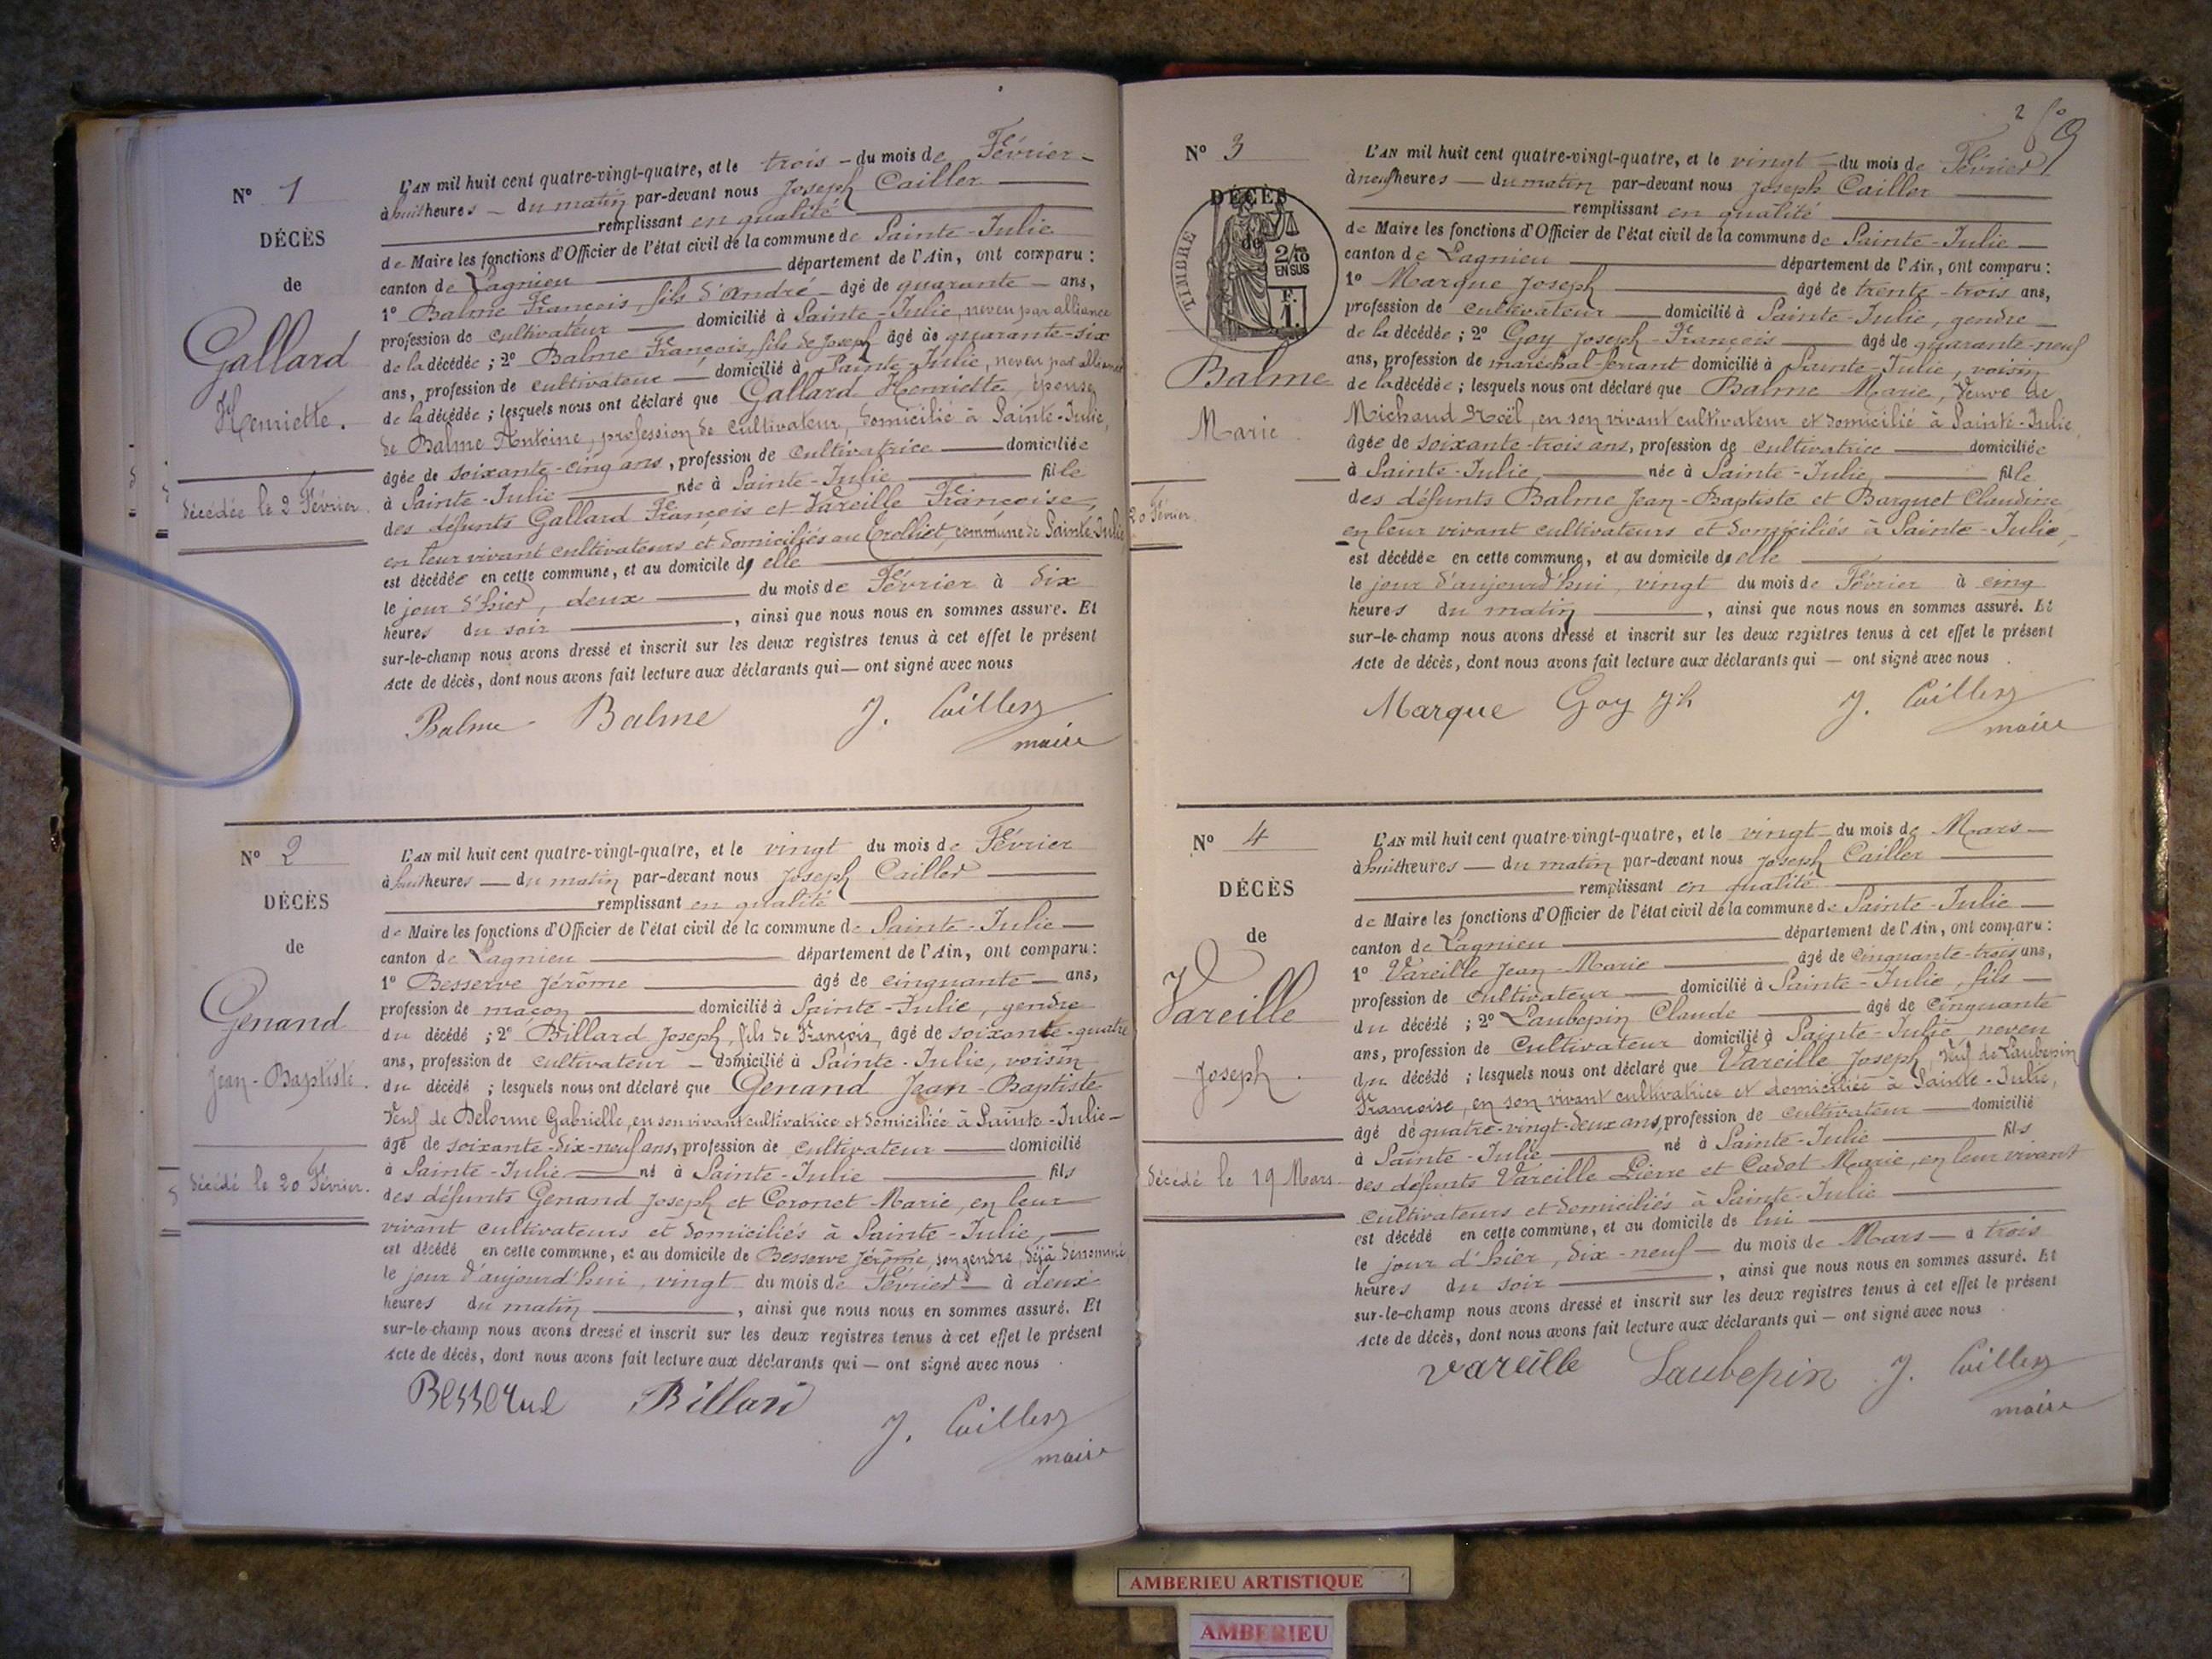 Nº 1
DÉCÈS
de
Gallard
Henriette.
décédée le 2 Février.
L'AN mil huit cent quatre-vingt-quatre, et le trois - du mois de Février -
à huit heures - du matin par-devant nous Joseph Cailler
remplissant en qualité
de Maire les fonctions d'Officier de l'état civil de la commune de Sainte-Julie
canton de Lagnieu département de l'Ain, ont comparu :
1º Balme François, fils d'André âgé de quarante - ans,
profession de cultivateur domicilié à Sainte-Julie, neveu par alliance
de la décédée ; 2º Balme François, fils de Joseph âgé de quarante-six
ans, profession de cultivateur domicilié à Sainte-Julie, neveu par alliance
de la décédée ; lesquels nous ont déclaré que Gallard Henriette, épouse
de Balme Antoine, profession de cultivateur, domicilié à Sainte-Julie,
âgée de soixante-cinq ans, profession de cultivatrice domiciliée
à Sainte-Julie née à Sainte-Julie fille
des défunts Gallard François et Vareille Françoise,
en leur vivant cultivateurs et domiciliés au Trolliet, commune de Sainte-Julie
est décédée en cette commune, et au domicile d'elle
le jour d'hier, deux du mois de Février à dix
heures du soir, ainsi que nous nous en sommes assuré. Et
sur-le-champ nous avons dressé et inscrit sur les deux registres tenus à cet effet le présent
Acte de décès, dont nous avons fait lecture aux déclarants qui — ont signé avec nous
Balme Balme J. Cailler
maire
Nº 2
DÉCÈS
de
Genand
Jean-Baptiste.
décédé le 20 Février.
L'AN mil huit cent quatre-vingt-quatre, et le vingt du mois de Février
à huit heures — du matin par-devant nous Joseph Cailler
remplissant en qualité
de Maire les fonctions d'Officier de l'état civil de la commune de Sainte-Julie
canton de Lagnieu département de l'Ain, ont comparu :
1º Besserve Jérôme âgé de cinquante — ans,
profession de maçon domicilié à Sainte-Julie, gendre
du décédé ; 2º Billard Joseph, fils de François, âgé de soixante-quatre
ans, profession de cultivateur - domicilié à Sainte-Julie, voisin
du décédé ; lesquels nous ont déclaré que Genand Jean-Baptiste
veuf de Delorme Gabrielle, en son vivant cultivatrice et domiciliée à Sainte-Julie -
âgé de soixante-dix-neuf ans, profession de cultivateur domicilié
à Sainte-Julie né à Sainte-Julie fils
des défunts Genand Joseph et Coronet Marie, en leur
vivant cultivateurs et domiciliés à Sainte-Julie,
est décédé en cette commune, et au domicile de Besserve Jérôme, son gendre, déjà dénommé
le jour d'aujourd'hui, vingt du mois de Février à deux
heures du matin, ainsi que nous nous en sommes assuré. Et
sur-le-champ nous avons dressé et inscrit sur les deux registres tenus à cet effet le présent
Acte de décès, dont nous avons fait lecture aux déclarants qui — ont signé avec nous
Besserve Billard J. Cailler
maire
2 fº 9
Nº 3
DÉCÈS
de
TIMBRE
2/10
EN SUS
F.
1.
Balme
Marie
20 Février.
L'AN mil huit cent quatre-vingt-quatre, et le vingt - du mois de Février
à neuf heures — du matin par-devant nous Joseph Cailler
remplissant en qualité
de Maire les fonctions d'Officier de l'état civil de la commune de Sainte-Julie
canton de Lagnieu département de l'Ain, ont comparu :
1º Marque Joseph âgé de trente-trois ans,
profession de cultivateur domicilié à Sainte-Julie, gendre
de la décédée ; 2º Goy Joseph-François âgé de quarante-neuf
ans, profession de maréchal-ferrant domicilié à Sainte-Julie, voisin
de la décédée ; lesquels nous ont déclaré que Balme Marie, veuve de
Michaud Noël, en son vivant cultivateur et domicilié à Sainte-Julie
âgée de soixante-trois ans, profession de cultivatrice domiciliée
à Sainte-Julie, née à Sainte-Julie, fille
des défunts Balme Jean-Baptiste et Barquet Claudine
en leur vivant cultivateurs et domiciliés à Sainte-Julie,
est décédée en cette commune, et au domicile d'elle
le jour d'aujourd'hui, vingt du mois de Février à cinq
heures du matin, ainsi que nous nous en sommes assuré. Et
sur-le-champ nous avons dressé et inscrit sur les deux registres tenus à cet effet le présent
Acte de décès, dont nous avons fait lecture aux déclarants qui — ont signé avec nous
Marque Goy Jh J. Cailler
maire
Nº 4
DÉCÈS
de
Vareille
Joseph.
décédé le 19 Mars
L'AN mil huit cent quatre-vingt-quatre, et le vingt - du mois de Mars
à huit heures — du matin par-devant nous Joseph Cailler
remplissant en qualité
de Maire les fonctions d'Officier de l'état civil de la commune de Sainte-Julie
canton de Lagnieu département de l'Ain, ont comparu :
1º Vareille Jean-Marie âgé de cinquante-trois ans,
profession de cultivateur domicilié à Sainte-Julie, fils
du décédé ; 2º Laubepin Claude âgé de cinquante
ans, profession de cultivateur domicilié à Sainte-Julie neveu
du décédé ; lesquels nous ont déclaré que Vareille Joseph, veuf de Laubepin
Françoise, en son vivant cultivatrice et domiciliée à Sainte-Julie,
âgé de quatre-vingt-deux ans, profession de cultivateur domicilié
à Sainte-Julie né à Sainte-Julie fils
des défunts Vareille Pierre et Cadot Marie, en leur vivant
cultivateurs et domiciliés à Sainte-Julie
est décédé en cette commune, et au domicile de lui
le jour d'hier, dix-neuf - du mois de Mars - à trois
heures du soir, ainsi que nous nous en sommes assuré. Et
sur-le-champ nous avons dressé et inscrit sur les deux registres tenus à cet effet le présent
Acte de décès, dont nous avons fait lecture aux déclarants qui — ont signé avec nous
Vareille Laubepin J. Cailler
maire
AMBERIEU ARTISTIQUE
AMBERIEU